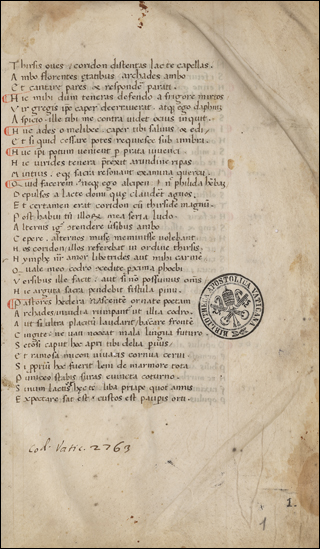 Thirsis oues, coridon distentas lacte capellas.
Ambo florentes etatibus archades ambo
Et cantare pares & respondere parati.
Hic mihi dum teneras defendo a frigore mirtos
Vir gregis ipse caper deerrauerat. atque ego daphnim
Aspicio. ille ubi me contra uidet ocius inquit.
Huc ades o melibee. caper tibi saluus & edi.
Et si quid cessare potes requiesce sub umbra.
Huc ipsi potum uenient per prata iuuenci.
Hic uirides tenera pretexit arundine ripas
Mintius. eque sacra resonant examina quercu.
Quid facerem? neque ego alcipen. nec phillida
Depulsos a lacte domi que clauderet agnos.
Et certamen erat coridon cum thirside magnum.
Posthabui tamen illorum mea seria ludo.
Alternis igitur uersibus ambo
Cepere. alternos muse meminisse uolebant.
Hos coridon. illos referebat in ordine thirsis.
Nymphe amor libetrides aut mihi carmen
Quale meo codro proxima phoebi
Versibus ille facit. aut si non possumus omnes
Hic arguta sacra pendebit fistula pinu.
Pastores hedera nascentem ornate poetam
Archades inuidia rumpantur ut illia codro.
Aut si ultra placitum laudarit baccare frontem
Cingite. ne uati noceat mala lingua futuro.
Setosi caput hoc apri tibi delia paruus
Et ramosa micon uiuacis cornua cerui
Si proprium hoc fuerit leui de marmore tota
Puniceo stabis suras euincta coturno.
Sinum lactis & hec te liba priape quot annis
Expectare sat est. custos est pauperis orti.
Cod. Vatic. 2763
BIBLIOTHECA APOSTOLICA VATICANA
1.
1